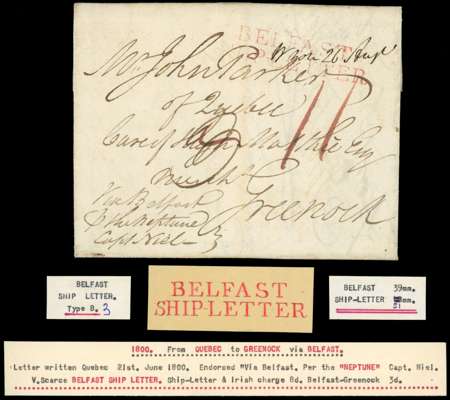 BELFAST
SHIP-LETTER
Wrote 26 Augt
Mr John Parker
of Quebec
Care of Hugh Mathie Esq
Mercht
Greenock
Via Belfast
P the Neptune
Capt Niel
11
BELFAST
SHIP LETTER.
Type B. 3
BELFAST
SHIP-LETTER
BELFAST 39mm.
SHIP-LETTER 51mm.
1800. From QUEBEC to GREENOCK via BELFAST.
Letter written Quebec 21st. June 1800. Endorsed "Via Belfast. Per the "NEPTUNE" Capt. Niel.
V.Scarce BELFAST SHIP LETTER. Ship-Letter & Irish charge 8d. Belfast-Greenock 3d.